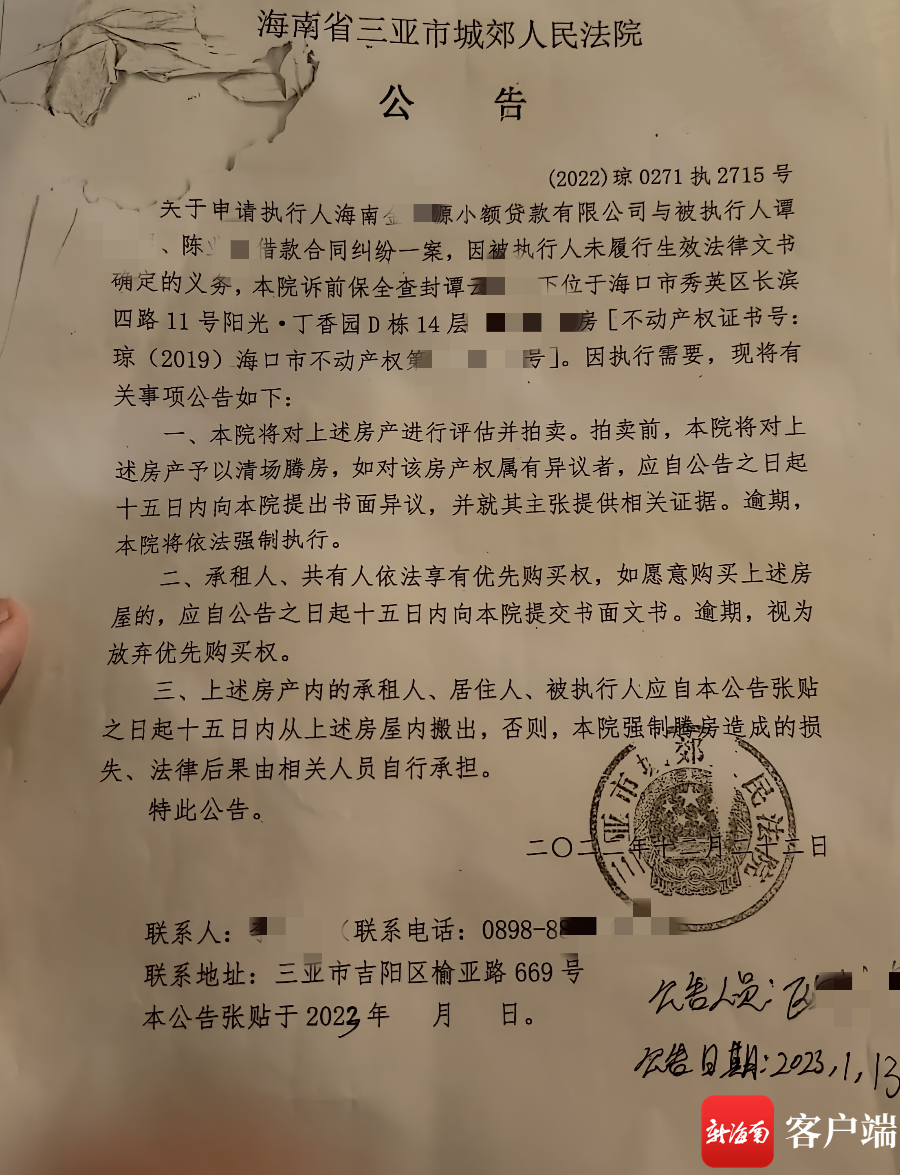 海南省三亚市城郊人民法院
公 告
(2022)琼0271执2715号
关于申请执行人海南金 源小额贷款有限公司与被执行人谭
、陈 借款合同纠纷一案，因被执行人未履行生效法律文书
确定的义务，本院诉前保全查封谭云 下位于海口市秀英区长滨
四路11号阳光·丁香园D栋14层 房［不动产权证书号：
琼（2019）海口市不动产权第 号］。因执行需要，现将有
关事项公告如下：
一、本院将对上述房产进行评估并拍卖。拍卖前，本院将对上
述房产予以清场腾房，如对该房产权属有异议者，应自公告之日起
十五日内向本院提出书面异议，并就其主张提供相关证据。逾期，
本院将依法强制执行。
二、承租人、共有人依法享有优先购买权，如愿意购买上述房
屋的，应自公告之日起十五日内向本院提交书面文书。逾期，视为
放弃优先购买权。
三、上述房产内的承租人、居住人、被执行人应自本公告张贴
之日起十五日内从上述房屋内搬出，否则，本院强制腾房造成的损
失、法律后果由相关人员自行承担。
特此公告。
三亚市城郊 民法院
二〇二二年十二月二十二日
联系人： （联系电话：0898-8
联系地址：三亚市吉阳区榆亚路669号
本公告张贴于2023年 月 日。
公告人员：
公告日期：2023,1,13
新海南 客户端